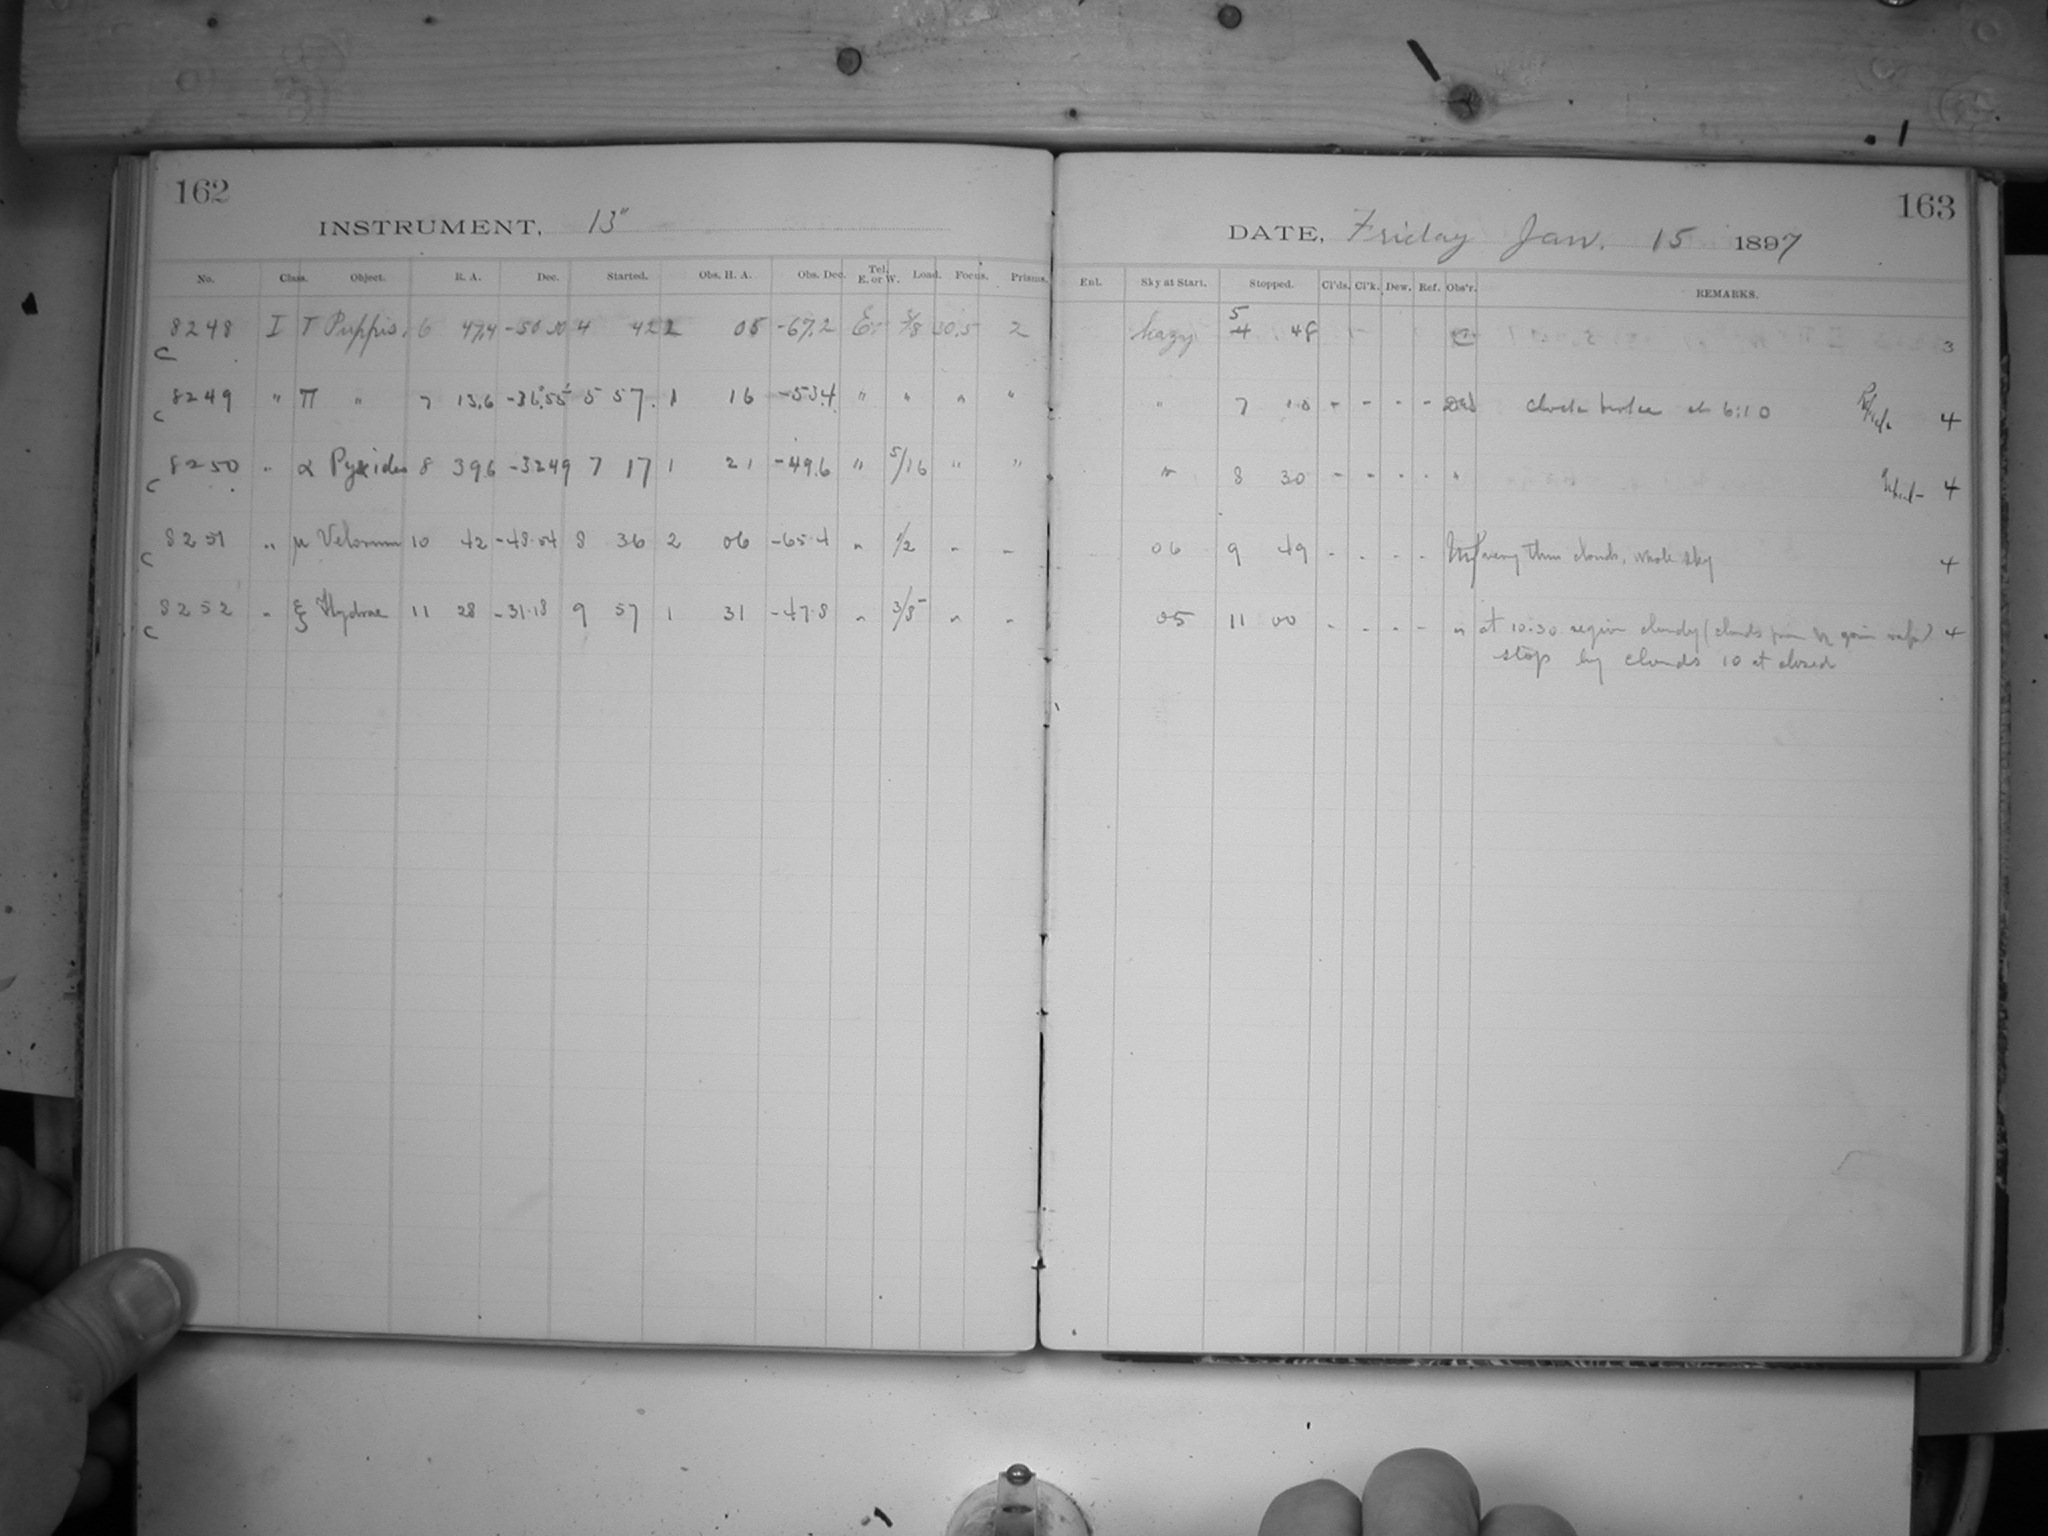 162
INSTRUMENT, 13"
No. Class. Object. R. A. Dec. Started. Obs. H. A. Obs. Dec. Tel. E. or W. Load. Focus. Prisms.
8248 I T Puppis. 6 47,4 -50.30 4 42 2 05 -67,2 E. 5/8 30,5 2
C
8249 " π " 7 13,6 -36,55 5 57. 1 16 -53,4 " " " "
C
8250 " α Pyxides 8 39,6 -32 49 7 17 1 21 -49,6 " 5/16 " "
C
8251 " μ Velorum 10 42 -48.54 8 36 2 06 -65.4 " 1/2 " "
C
8252 " ξ Hydrae 11 28 -31.18 9 57 1 31 -47.8 " 3/8 " "
C
163
DATE, Friday Jan. 15 1897
Enl. Sky at Start. Stopped. Cl'ds. Cl'k. Dew. Ref. Obs'r. REMARKS.
hazy 5 4 48 3
" 7 10 - - - - clock broke at 6:10 4
" 8 30 - - - - " 4
06 9 49 - - - - very thin clouds, whole sky 4
05 11 00 - - - - " at 10:30 region cloudy (clouds from 4
stop by clouds 10 at closed